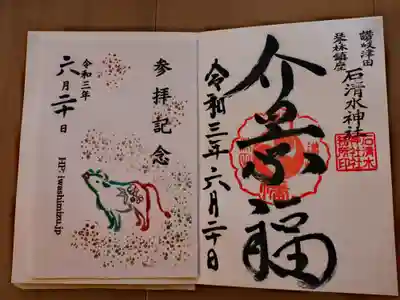 讃岐津田
琴林鎮座
石清水神社
介景福
令和三年六月二十日
参拝記念
令和三年
六月二十日
HP: iwashimizu.jp